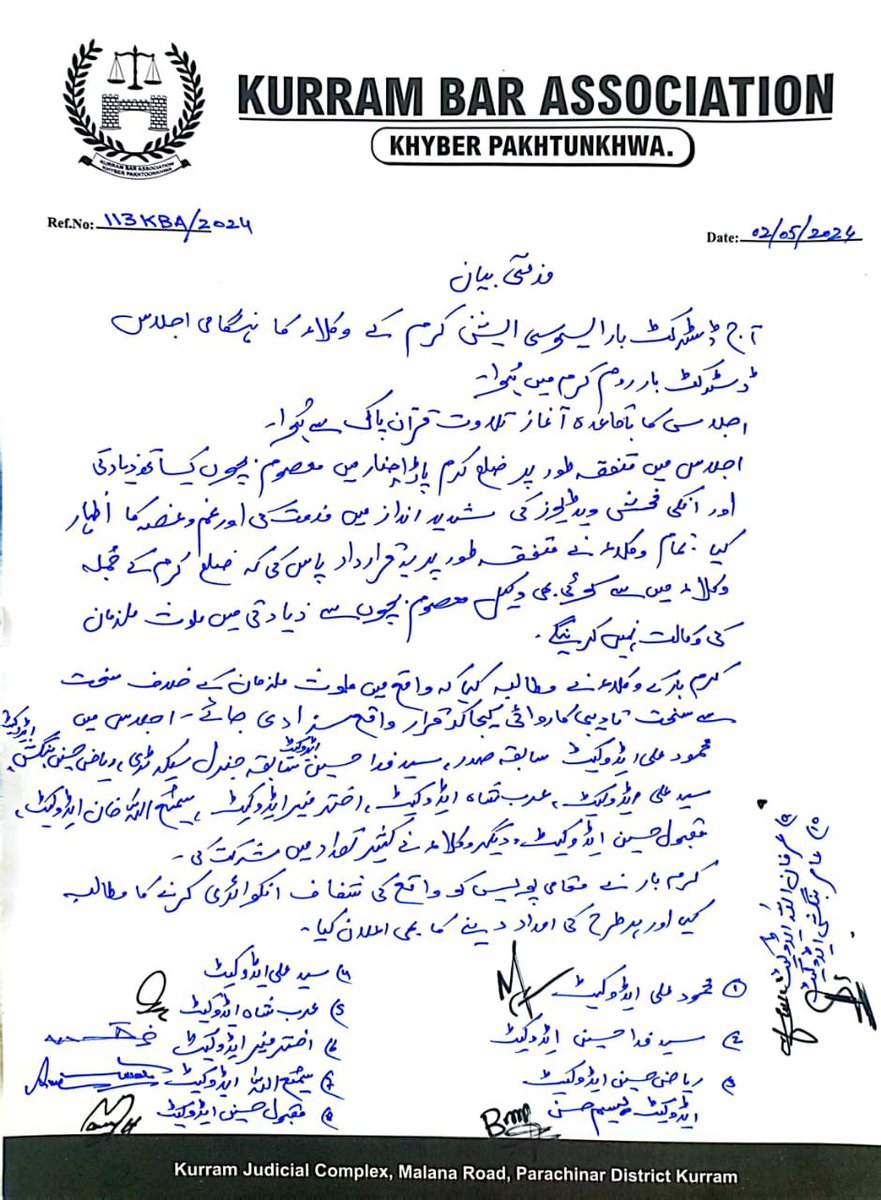 KURRAM BAR ASSOCIATION
KHYBER PAKHTUNKHWA.
KURRAM BAR ASSOCIATION
KHYBER PAKHTOONKHWA
Ref.No: 113KBA/2024
Date: 02/05/2024
مذمتی بیان
آج ڈسٹرکٹ بار ایسوسی ایشن کرم کے وکلاء کا ہنگامی اجلاس
ڈسٹرکٹ بار روم کرم میں ہُوا۔
اجلاس کا باقاعدہ آغاز تلاوت قرآن پاک سے ہُوا۔
اجلاس میں متفقہ طور پر ضلع کرم پاڑاچنار میں معصوم بچوں کیساتھ زیادتی
اور انکی فحش ویڈیوز کی شدید انداز میں مذمت کی اور غم و غصہ کا اُظہار
کیا۔ تمام وکلاء نے متفقہ طور پر یہ قرارداد پاس کی کہ ضلع کرم کے جُملہ
وکلاء میں سے کوئی بھی وکیل معصوم بچوں سے زیادتی میں ملوث ملزمان
کی وکالت نہیں کرینگے۔
کرم بار کے وکلاء نے مطالبہ کیا کہ واقع میں ملوث ملزمان کے خلاف سخت
سے سخت تادیبی کاروائی کیجا کر قرار واقع سزا دی جائے۔ اجلاس میں
محمود علی ایڈوکیٹ سابقہ صدر، سید فدا حسین ایڈوکیٹ سابقہ جنرل سیکرٹری، ریاض حسین بنگش ایڈوکیٹ
سید علی ایڈوکیٹ، عرب شاہ ایڈوکیٹ، اختر منیر ایڈوکیٹ، سمیع اللہ خان ایڈوکیٹ،
مقبول حسین ایڈوکیٹ، دیگر وکلاء نے کثیر تعداد میں شرکت کی۔
کرم بار نے مقامی پولیس کو واقع کی شفاف انکوائری کرنے کا مطالبہ
کیا اور ہر طرح کی امداد دینے کا بھی اعلان کیا۔
1) محمود علی ایڈوکیٹ
2) سید فدا حسین ایڈوکیٹ
3) ریاض حسین ایڈوکیٹ
ایڈوکیٹ حسن
4) سید علی ایڈوکیٹ
5) عرب شاہ ایڈوکیٹ
6) اختر منیر ایڈوکیٹ
7) سمیع اللہ ایڈوکیٹ
8) مقبول حسین ایڈوکیٹ
9) عرفان اللہ ایڈوکیٹ
10) عامر بنگش ایڈوکیٹ
Kurram Judicial Complex, Malana Road, Parachinar District Kurram